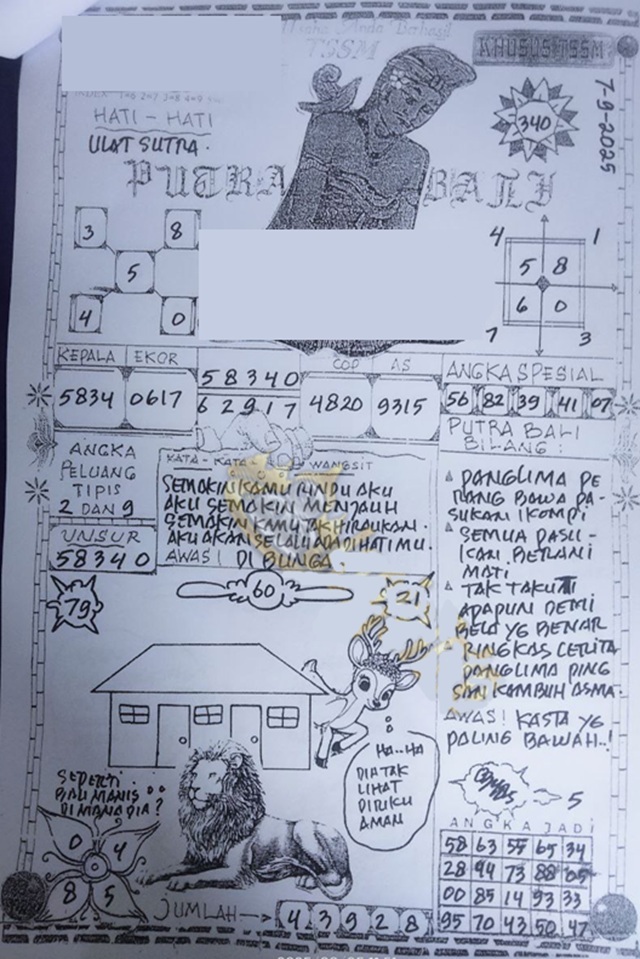 Anda Berhasil
TSSM
KHUSUS TSSM
7-9-2025
340
HATI - HATI
ULAT SUTRA.
PUTRA BALI
3 8
5
4 0
4 1
5 8
6 0
7 3
KEPALA EKOR
5834 0617
58340
62917
COP AS
4820 9315
ANGKA SPESIAL
56 82 39 41 07
ANGKA
PELUANG
TIPIS
2 DAN 9
UNSUR
58340
KATA - KATA WANGSIT
SEMAKIN KAMU RINDU AKU
AKU SEMAKIN MENJAUH
SEMAKIN KAMU TAK HIRAUKAN.
AKU AKAN SELALU ADA DIHATIMU.
AWAS! DI BUNGA.
PUTRA BALI
BILANG:
PANGLIMA PE
RANG BAWA PA-
SUKAN 1 KOMPI
SEMUA PASU-
KAN BERANI
MATI
TAK TAKUT
ADAPUN DEMI
BELA YG BENAR
RINGKAS CERITA
PANGLIMA PING
SAN KAMBUH ASMA.
AWAS! KASTA YG
PALING BAWAH..!
79
60
21
HA..HA
DIA TAK
LIHAT
DIRIKU
AMAN
SEPERTI
BAU MANIS
DIMANA DIA?
0 4
8 5
5
ANGKA JADI
58 63 55 65 34
28 94 73 88 05
00 85 14 93 33
95 70 43 50 47
JUMLAH
4 3 9 2 8